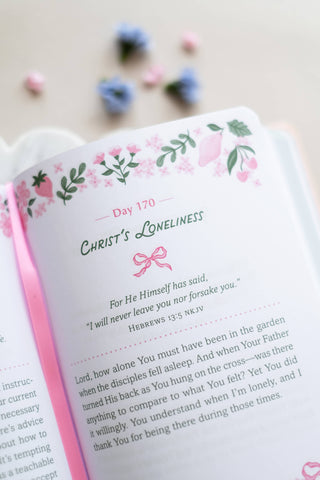 Day 170
CHRIST'S LONELINESS
For He Himself has said,
"I will never leave you nor forsake you."
HEBREWS 13:5 NKJV
Lord, how alone You must have been in the garden
when the disciples fell asleep. And when Your Father
turned His back as You hung on the cross—was there
anything to compare to what You felt? Yet You did
it willingly. You understand when I'm lonely, and I
thank You for being there during those times.
instruc-
ur current
necessary
ere's advice
bout how to
It's tempting
s a teachable